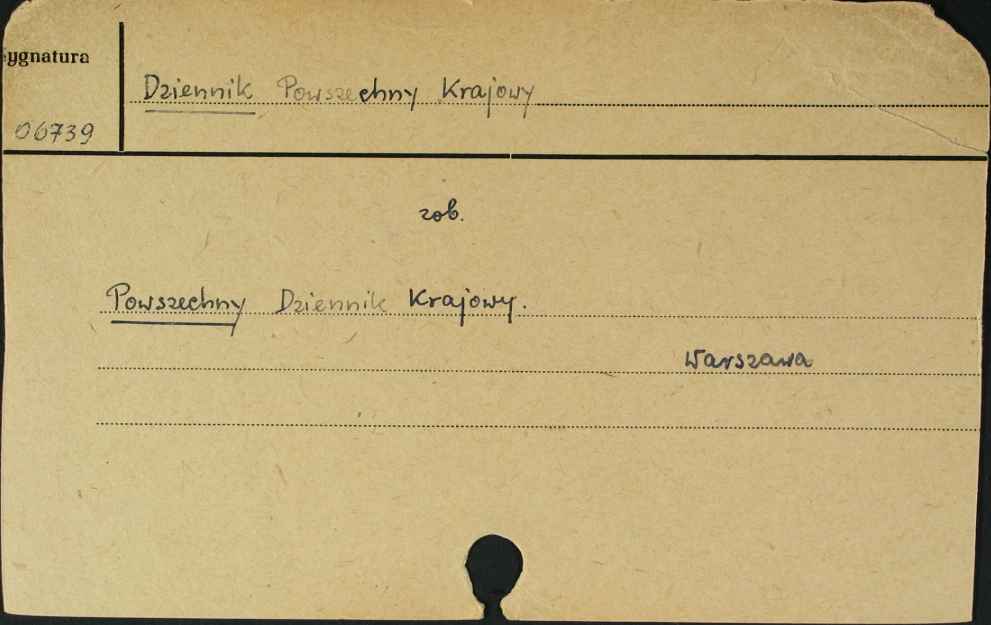 Sygnatura
Dziennik Powszechny Krajowy
06739
zob.
Powszechny Dziennik Krajowy.
Warszawa